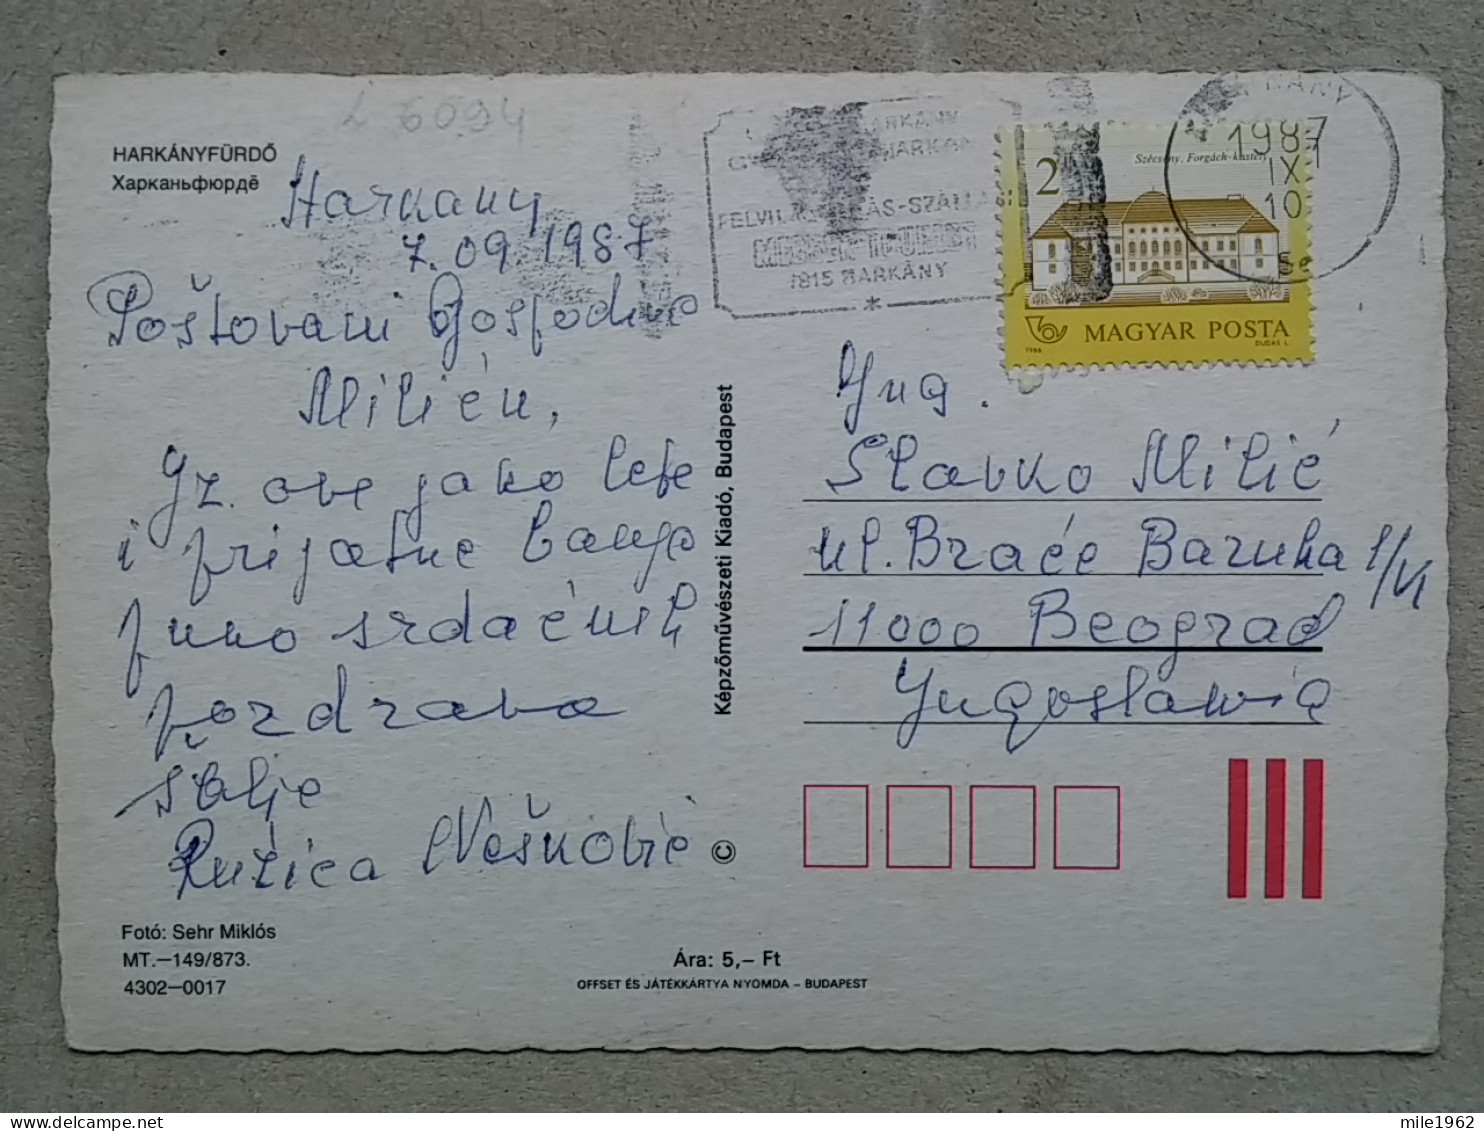 L 6094
HARKÁNYFÜRDŐ
Харканьфюрдё
Harkany
7.09.1987
Poštovani Gospodine
Miliću,
Iz ove jako lepe
i prijatne banje
puno srdačnih
pozdrava
šalje
Ružica Nešković
Fotó: Sehr Miklós
MT.—149/873.
4302—0017
Ára: 5,– Ft
OFFSET ÉS JÁTÉKKÁRTYA NYOMDA – BUDAPEST
Képzőművészeti Kiadó, Budapest
©
HARKÁNY
FELVILÁGOSÍTÁS-SZÁLLÁS
7815 HARKÁNY
*
1987
IX
10
2
Szécsény, Forgách-kastély
MAGYAR POSTA
1986
DUDÁS L.
Jug.
Slavko Milić
ul. Braće Baruha 1/VI
11000 Beograd
Jugoslawia
mile1962